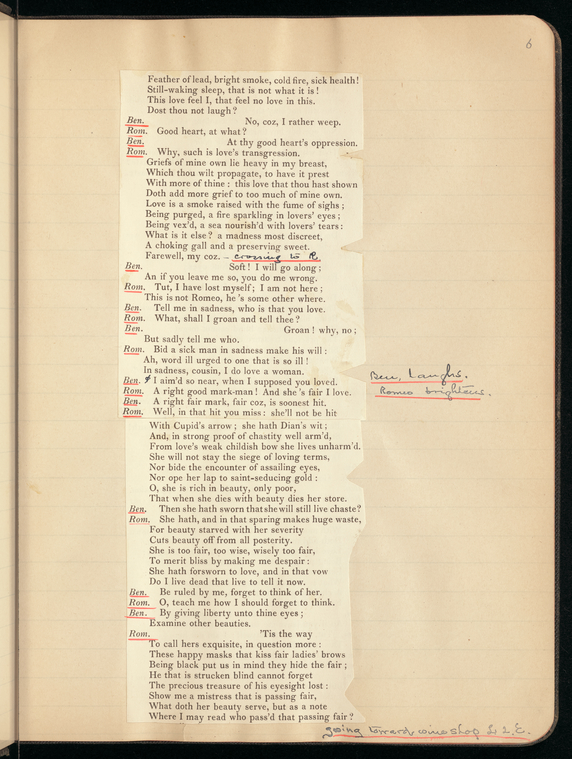 6
Feather of lead, bright smoke, cold fire, sick health!
Still-waking sleep, that is not what it is!
This love feel I, that feel no love in this.
Dost thou not laugh?
Ben. No, coz, I rather weep.
Rom. Good heart, at what?
Ben. At thy good heart's oppression.
Rom. Why, such is love's transgression.
Griefs of mine own lie heavy in my breast,
Which thou wilt propagate, to have it prest
With more of thine: this love that thou hast shown
Doth add more grief to too much of mine own.
Love is a smoke raised with the fume of sighs;
Being purged, a fire sparkling in lovers' eyes;
Being vex'd, a sea nourish'd with lovers' tears:
What is it else? a madness most discreet,
A choking gall and a preserving sweet.
Farewell, my coz. – crossing to R.
Ben. Soft! I will go along;
An if you leave me so, you do me wrong.
Rom. Tut, I have lost myself; I am not here;
This is not Romeo, he's some other where.
Ben. Tell me in sadness, who is that you love.
Rom. What, shall I groan and tell thee?
Ben. Groan! why, no;
But sadly tell me who.
Rom. Bid a sick man in sadness make his will:
Ah, word ill urged to one that is so ill!
In sadness, cousin, I do love a woman.
Ben. I aim'd so near, when I supposed you loved.
Ben. Laughs.
Rom. A right good mark-man! And she's fair I love.
Romeo brightens.
Ben. A right fair mark, fair coz, is soonest hit.
Rom. Well, in that hit you miss: she'll not be hit
With Cupid's arrow; she hath Dian's wit;
And, in strong proof of chastity well arm'd,
From love's weak childish bow she lives unharm'd.
She will not stay the siege of loving terms,
Nor bide the encounter of assailing eyes,
Nor ope her lap to saint-seducing gold:
O, she is rich in beauty, only poor,
That when she dies with beauty dies her store.
Ben. Then she hath sworn that she will still live chaste?
Rom. She hath, and in that sparing makes huge waste,
For beauty starved with her severity
Cuts beauty off from all posterity.
She is too fair, too wise, wisely too fair,
To merit bliss by making me despair:
She hath forsworn to love, and in that vow
Do I live dead that live to tell it now.
Ben. Be ruled by me, forget to think of her.
Rom. O, teach me how I should forget to think.
Ben. By giving liberty unto thine eyes;
Examine other beauties.
Rom. 'Tis the way
To call hers exquisite, in question more:
These happy masks that kiss fair ladies' brows
Being black put us in mind they hide the fair;
He that is strucken blind cannot forget
The precious treasure of his eyesight lost:
Show me a mistress that is passing fair,
What doth her beauty serve, but as a note
Where I may read who pass'd that passing fair?
going toward wine shop L 2 E.